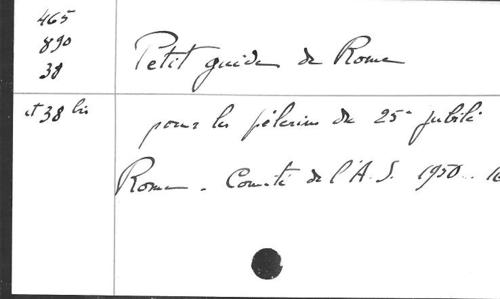 465
890
38
Petit guide de Rome
et 38 bis
pour les pèlerins du 25e jubilé
Rome. Comité de l'A. S. 1950. 16